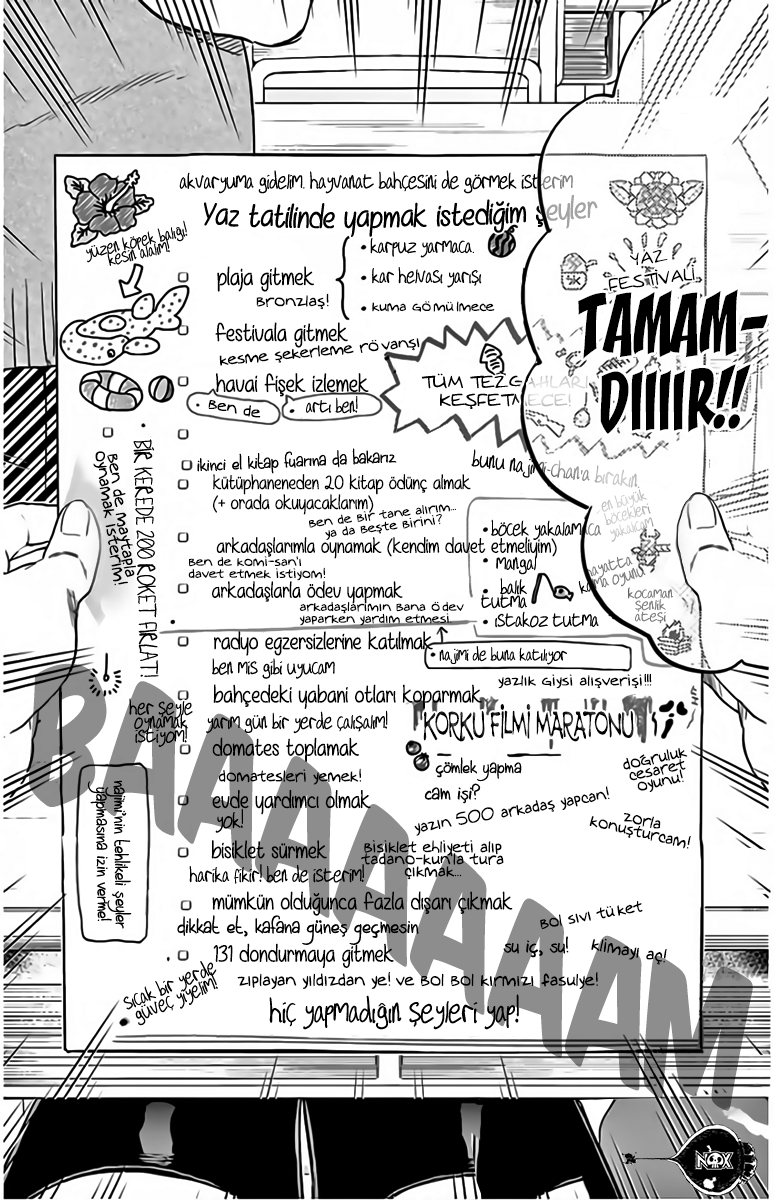 akvaryuma gidelim. hayvanat bahçesini de görmek isterim
Yaz tatilinde yapmak istediğim şeyler
yüzen köpek balığı!
kesin alalım!
plaja gitmek
Bronzlaş!
• karpuz yarmaca.
• kar helvası yarışı
• kuma gömülmece
YAZ
FESTİVALİ
TAMAM-
DIIIIR!!
festivala gitmek
kesme şekerleme rövanşı
havai fişek izlemek
• Ben de
• artı ben!
TÜM TEZGAHLARI
KEŞFETMECE!
ikinci el kitap fuarına da bakarız
bunu najimi-chan'a bırakın
kütüphaneneden 20 kitap ödünç almak
(+ orada okuyacaklarım)
Ben de Bir tane alırım...
ya da Beşte Birini?
arkadaşlarımla oynamak (kendim davet etmeliyim)
Ben de komi-san'ı
davet etmek istiyom!
• böcek yakalamaca
• mangal
• balık
tutma
• ıstakoz tutma
en büyük
böcekleri
yakalıcam
hayatta
kalma oyunu
kocaman
şenlik
ateşi
arkadaşlarla ödev yapmak
arkadaşlarımın bana ödev
yaparken yardım etmesi
• BİR KEREDE 200 ROKET FIRLAT!
Ben de maytapla
oynamak isterim!
radyo egzersizlerine katılmak
• najimi de buna katılıyor
ben mis gibi uyucam
yazlık Giysi alışverişi!!!
bahçedeki yabani otları koparmak
her şeyle
oynamak
istiyom!
yarım gün bir yerde çalışalım!
KORKU FİLMİ MARATONU
domates toplamak
domatesleri yemek!
çömlek yapma
cam işi?
doğruluk
cesaret
oyunu!
evde yardımcı olmak
yok!
yazın 500 arkadaş yapcan!
zorla
konuşturcam!
najimi'nin tehlikeli şeyler
yapmasına izin verme!
bisiklet sürmek
Bisiklet ehliyeti alıp
tadano-kun'la tura
çıkmak...
harika fikir! ben de isterim!
mümkün olduğunca fazla dışarı çıkmak
dikkat et, kafana güneş geçmesin
Bol sıvı tüket
131 dondurmaya gitmek
su iç, su!
klimayı aç!
zıplayan yıldızdan ye! ve Bol Bol kırmızı fasulye!
• sıcak bir yerde
güveç yiyelim!
hiç yapmadığın şeyleri yap!
BAAAAAAAAAM
NOX